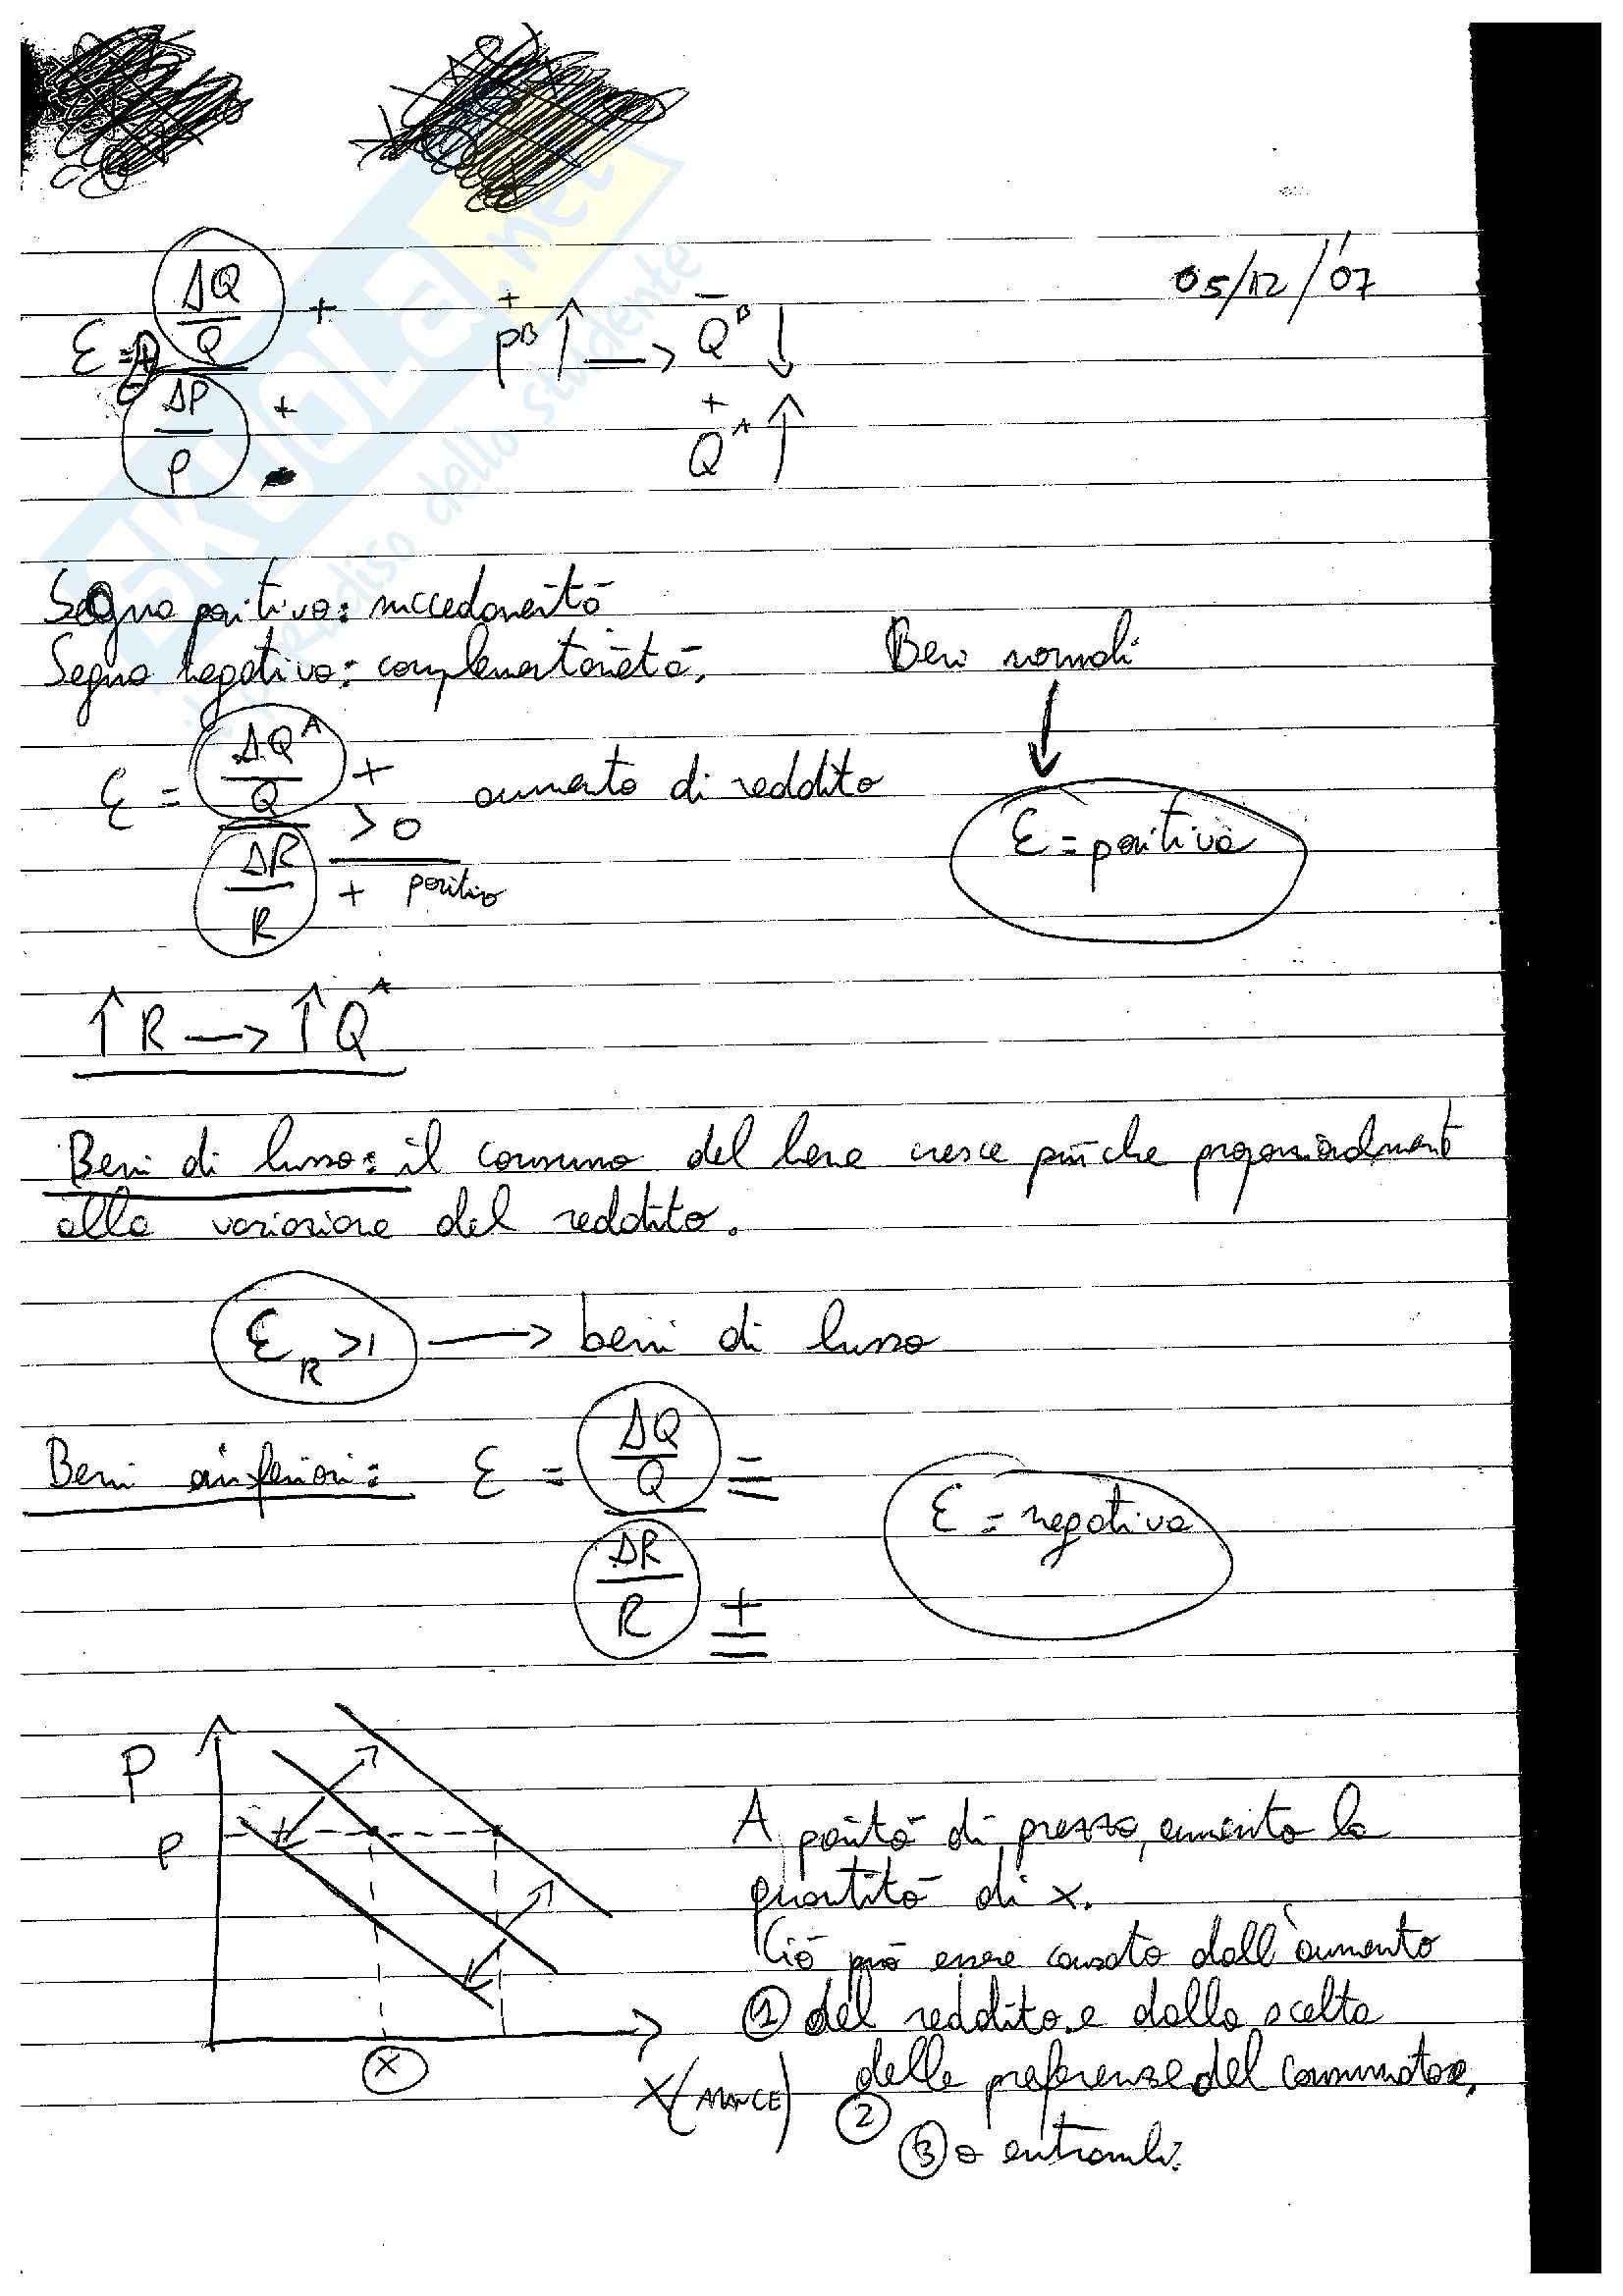 05/12/'07
ε = ΔQ/Q +
ΔP/P +
+ pᴮ ↑ → − Qᴮ ↓
+ Qᴬ ↑
Segno positivo: succedaneità
Segno negativo: complementarietà.
Beni normali
ε = ΔQᴬ/Q + > 0 aumento di reddito
ΔR/R + positivo
ε = positiva
↑ R → ↑ Qᴬ
Beni di lusso: il consumo del bene cresce più che proporzionalmente
alla variazione del reddito.
ε_R >1 → beni di lusso
Beni inferiori: ε = ΔQ/Q −
ΔR/R +
ε = negativa
P
P
X
X (ARANCE)
A parità di prezzo, aumenta la
quantità di x.
Ciò può essere causato dall'aumento
① del reddito, e dalla scelta
delle preferenze del consumatore,
②
③ o entrambi.
SKUOLA.net
il paradiso dello studente